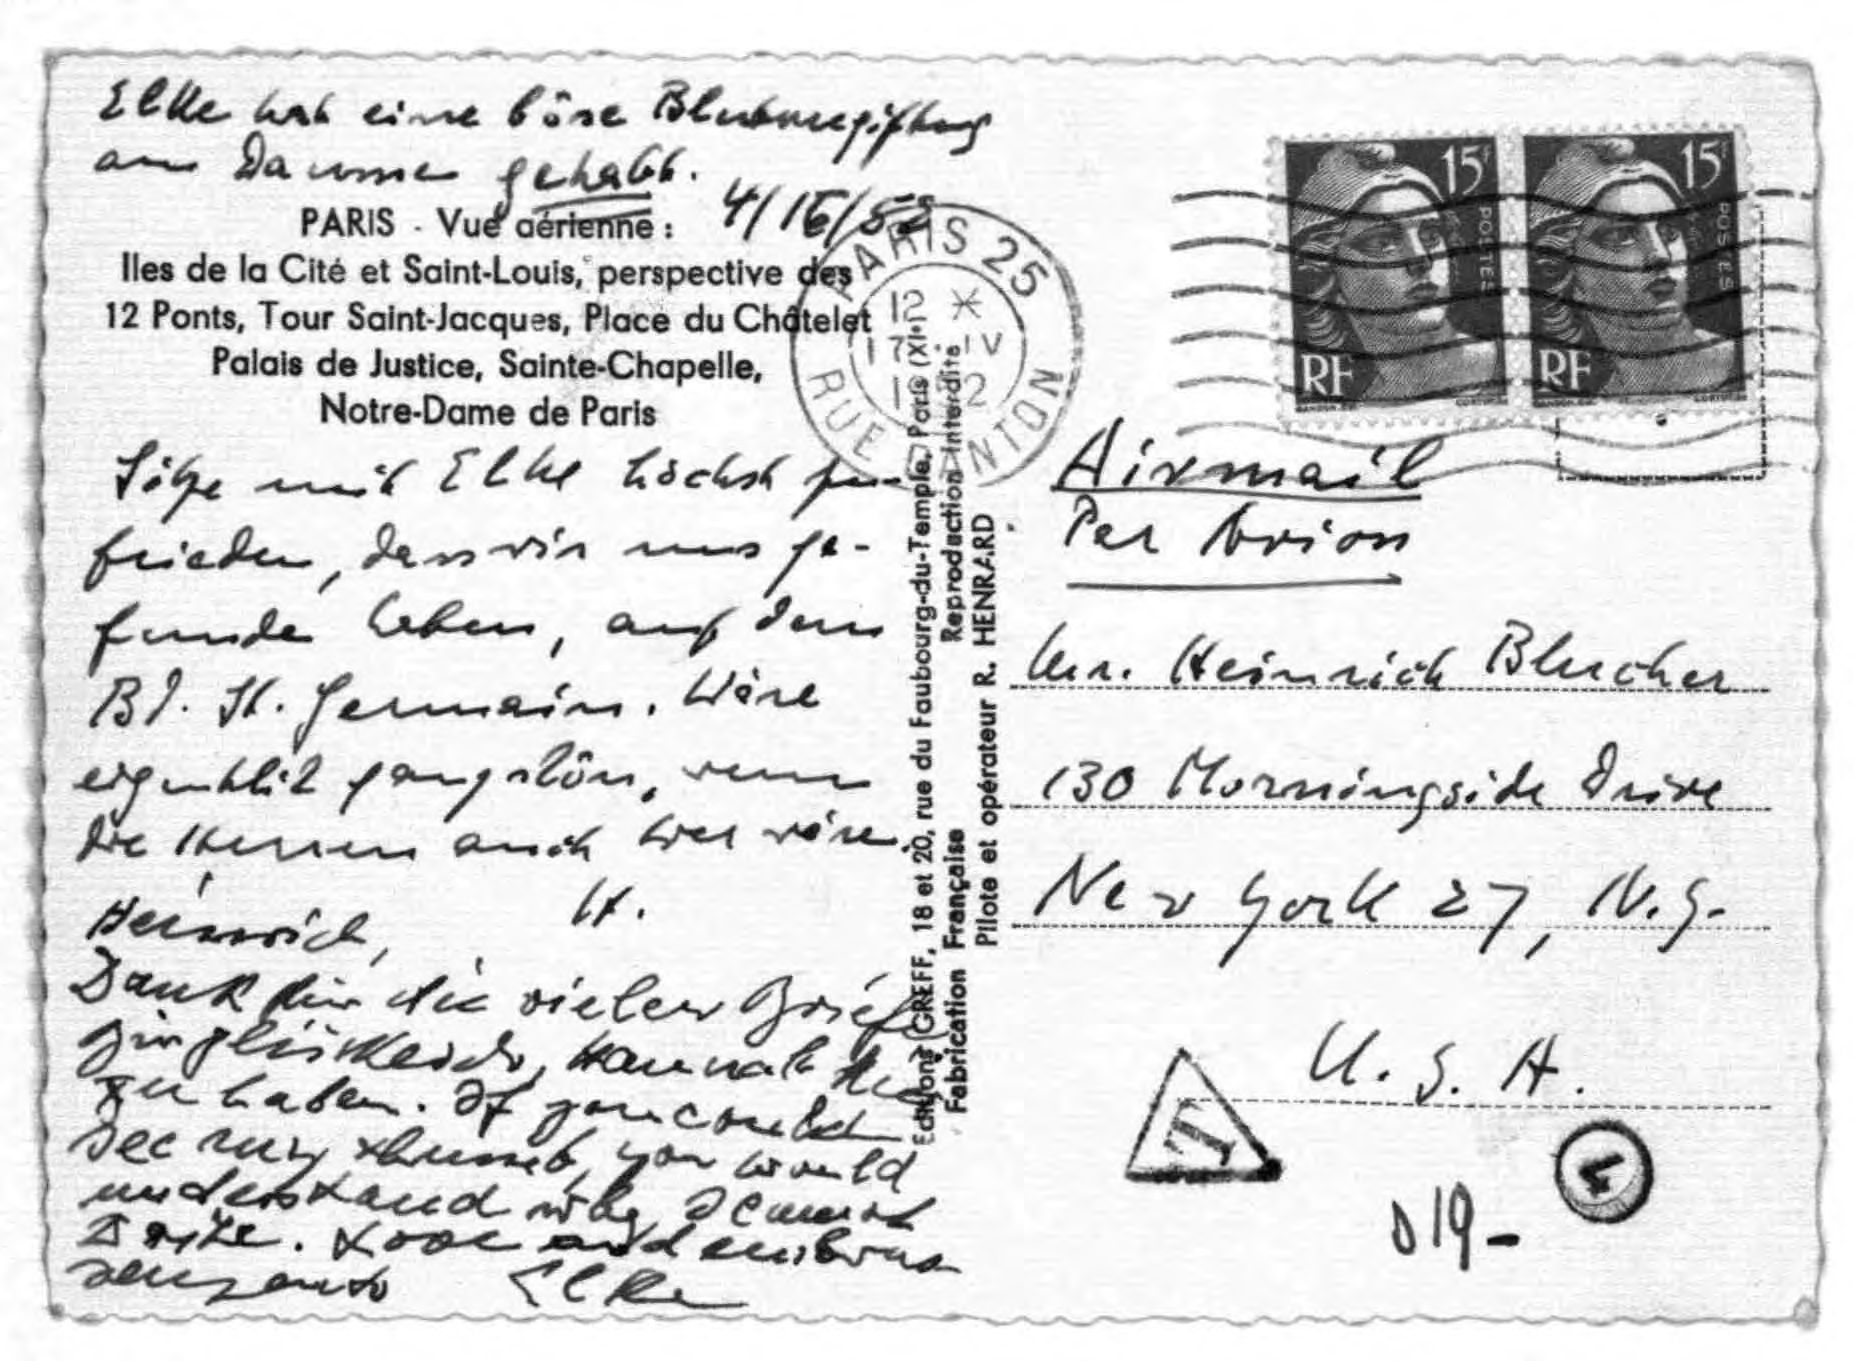 Elke hat eine böse Blutvergiftung
am Daumen gehabt.
4/16/52
PARIS - Vue aérienne :
Iles de la Cité et Saint-Louis, perspective des
12 Ponts, Tour Saint-Jacques, Place du Châtelet
Palais de Justice, Sainte-Chapelle,
Notre-Dame de Paris
Sitze mit Elke höchst zu-
frieden, dass wir uns ge-
funden haben, auf dem
Bd. St. Germain. Wäre
eigentlich ganz schön, wenn
die Herren auch hier wären.
H.
Heinrich,
Dank für die vielen Briefe
Bin glücklich, Hannah hier
zu haben. If you could
see my thumb, you would
understand why I cannot
write. Love and
Elke
PARIS 25
12 *
17 IV
RUE DANTON
Editions GREFF, 18 et 20, rue du Faubourg-du-Temple, Paris (XIe
Fabrication Française
Reproduction Interdite
Pilote et opérateur R. HENRARD
15F
POSTES
RF
15F
POSTES
RF
Airmail
Par Avion
Mr. Heinrich Blucher
130 Morningside Drive
New York 27, N.Y.
U. S. A.
T
019-